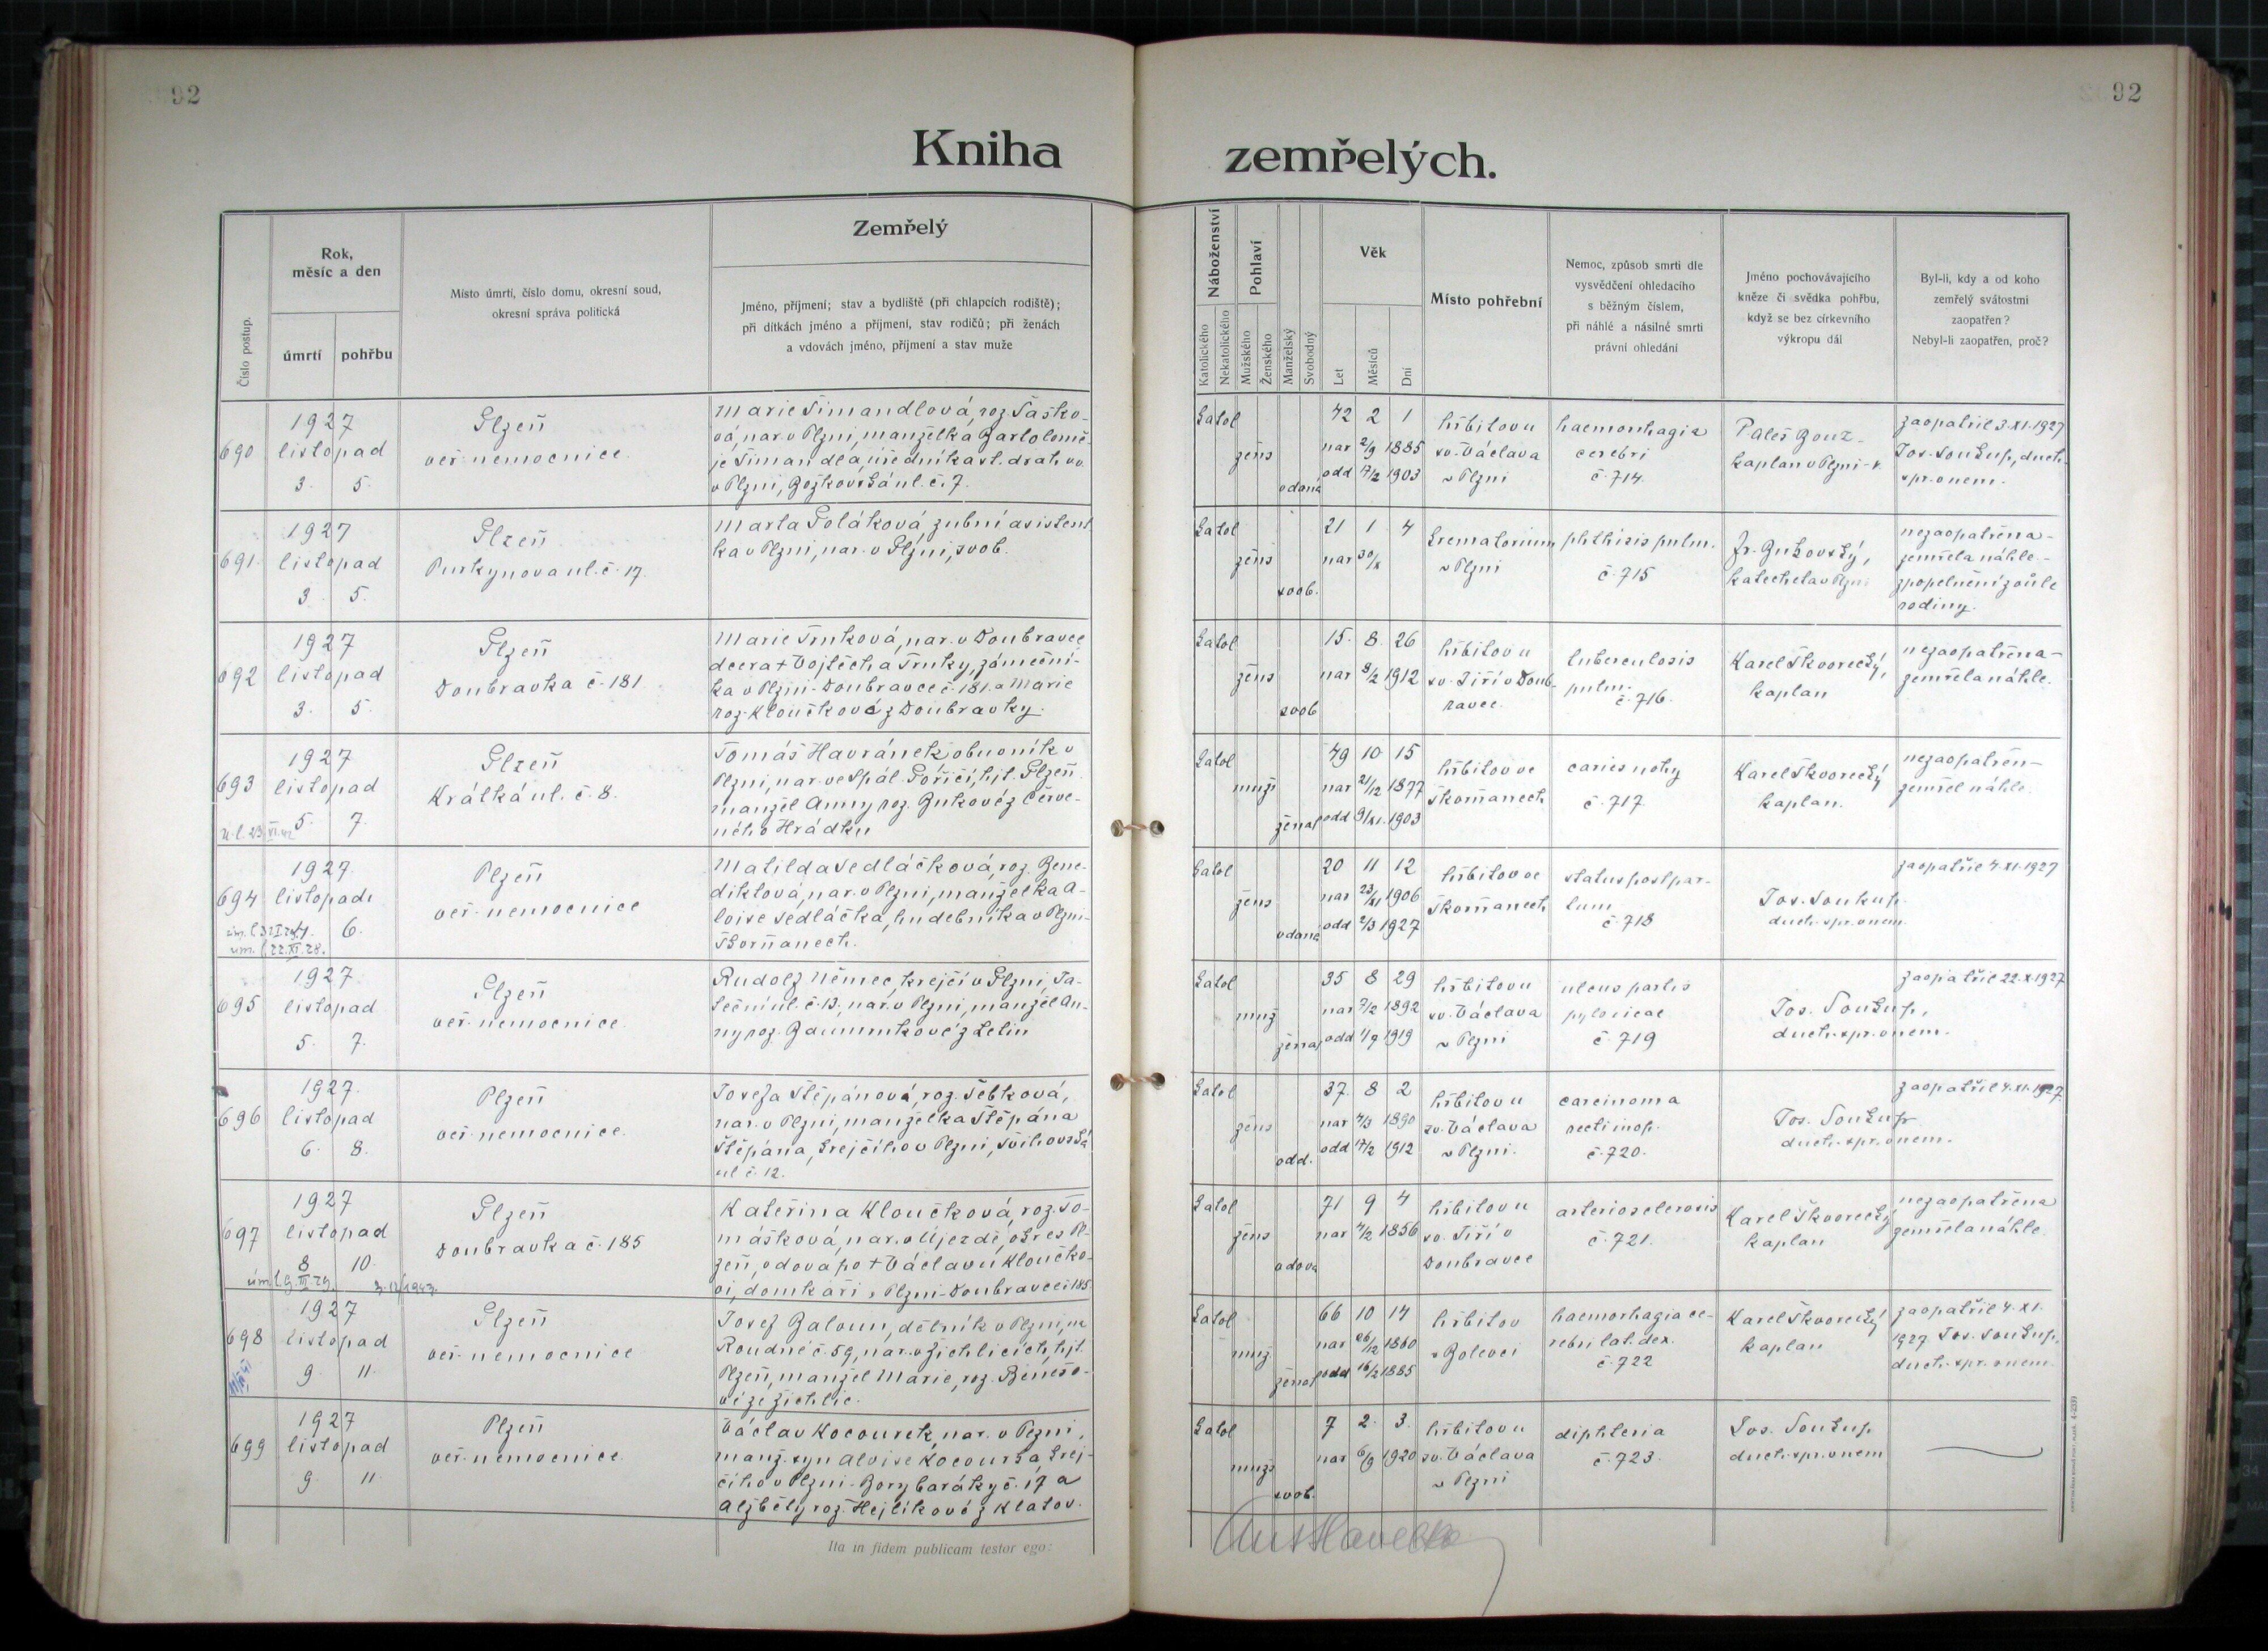 92
92
Kniha
zemřelých.
Číslo postup.
Rok,
měsíc a den
úmrtí
pohřbu
Místo úmrtí, číslo domu, okresní soud,
okresní správa politická
Zemřelý
Jméno, příjmení; stav a bydliště (při chlapcích rodiště);
při dítkách jméno a příjmení, stav rodičů; při ženách
a vdovách jméno, příjmení a stav muže
Náboženství
Katolického
Nekatolického
Pohlaví
Mužského
Ženského
Manželský
Svobodný
Věk
Let
Měsíců
Dní
Místo pohřební
Nemoc, způsob smrti dle
vysvědčení ohledacího
s běžným číslem,
při náhlé a násilné smrti
právní ohledání
Jméno pochovávajícího
kněze či svědka pohřbu,
když se bez církevního
výkropu dál
Byl-li, kdy a od koho
zemřelý svátostmi
zaopatřen?
Nebyl-li zaopatřen, proč?
690
1927
listopad
3. 5.
Plzeň
veř. nemocnice.
Marie Šimandlová, roz. Saško-
vá, nar. v Plzni, manželka Bartolomě-
je Šimandla, úředníka st. drah. vv.
v Plzni, Božkovská ul. č. 7.
katol
žens
vdaná
42 2 1
nar 2/9 1885
odd 17/2 1903
hřbitov u
sv. Václava
v Plzni
haemorrhagia
cerebri
č. 714.
kaplan v Plzni
zaopatřil 3.XI.1927
Jos. Soukup, duch.
spr. v nem.
691.
1927
listopad
3. 5.
Plzeň
Purkyňova ul. č. 17.
Marta Poláková, zubní asistent
ka v Plzni, nar. v Plzni, svob.
katol
žens
svob.
21 1 4
nar 30/X
krematorium
v Plzni
phthisis pulm.
č. 715
katecheta v Plzni
nezaopatřena-
zemřela náhle-
zpopelnění z vůle
rodiny.
692
1927
listopad
3. 5.
Plzeň
Doubravka č. 181
Marie Trnková, nar. v Doubravce
dcera + Vojtěcha Trnky, zámeční-
ka v Plzni-Doubravce č. 181. a Marie
roz. Kloučkové z Doubravky.
katol
žens
svob
15. 8. 26
nar 8/2 1912
hřbitov u
sv. Jiří v Doub-
ravce.
tuberculosis
pulm.
č. 716.
Karel Škvorecký,
kaplan
nezaopatřena-
zemřela náhle.
693
1927
listopad
5. 7.
Plzeň
Krátká ul. č. 8.
Tomáš Havránek, obuvník v
Plzni, nar. ve Spál. Poříčí, hjt. Plzeň
manžel Anny roz. Bukové z Červe-
ného Hrádku
katol
mužs
ženat
49 10 15
nar 21/12 1877
odd 9/XI. 1903
hřbitov ve
Skvrňanech
caries nohy
č. 717.
Karel Škvorecký
kaplan.
nezaopatřen-
zemřel náhle.
694
1927.
listopad
6.
Plzeň
veř. nemocnice
Matilda Sedláčková, roz. Bene-
diktová, nar. v Plzni, manželka A-
loise Sedláčka, hudebníka v Plzni-
Skvrňanech.
katol
žens
vdaná
20 11 12
nar 23/XI 1906
odd 2/3 1927
hřbitov ve
Skvrňanech
status post par-
tum
č. 718
Jos. Soukup.
duch. spr. v nem.
zaopatřil 4.XI.1927
695
1927.
listopad
5. 7.
Plzeň
veř. nemocnice.
Rudolf Němec, krejčí v Plzni, Ta-
č. 13, nar. v Plzni, manžel An-
ny roz. z Letin
katol
muž
ženat
35 8 29
nar 7/2 1892
odd 4/9 1919
hřbitov u
sv. Václava
v Plzni
ulcus partis
pyloricae
č. 719
Jos. Soukup,
duch. spr. v nem.
zaopatřil 22.X.1927
696
1927.
listopad
6. 8.
Plzeň
veř. nemocnice.
Josefa Štěpánová, roz. Šebková,
nar. v Plzni, manželka Štěpána
Štěpána, krejčího v Plzni, Švihovská
ul č. 12.
katol
žens
odd.
37. 8 2
nar 4/3 1890
odd 17/2 1912
hřbitov u
sv. Václava
v Plzni.
carcinoma
recti inop.
č. 720.
Jos. Soukup
duch. spr. v nem.
zaopatřil 4.XI.1927
697
1927
listopad
8 10.
3.12/1943.
Plzeň
Doubravka č. 185
Kateřina Kloučková, roz. To-
mášková, nar. v Újezdě, okres Pl-
zeň, vdova po + Václavu Kloučko-
vi, domkáři v Plzni-Doubravce č. 185.
katol
žens
vdova
71 9 4
nar 4/2 1856
hřbitov u
sv. Jiří v
Doubravce
arteriosclerosis
č. 721.
Karel Škvorecký
kaplan
nezaopatřena
zemřela náhle.
698
1927
listopad
9. 11.
Plzeň
veř. nemocnice
Josef Baloun, dělník v Plzni, na
Roudné č. 59, nar. v Žichlicích, hjt.
Plzeň, manžel Marie, roz. Benešo-
vé ze Žichlic.
katol
muž
ženat
66 10 14
nar 26/12 1860
odd 16/2 1885
hřbitov
v Bolevci
haemorhagia ce-
rebri lat. dex.
č. 722
Karel Škvorecký
kaplan
zaopatřil 4.XI.
1927. Jos. Soukup,
duch. spr. v nem.
699
1927
listopad
9. 11.
Plzeň
veř. nemocnice.
Václav Kocourek, nar. v Plzni,
manž. syn Aloise Kocourka, krej-
čího v Plzni-Bory baráky č. 17 a
Alžběty roz. Hejlíkové z Klatov.
katol
mužs
svob.
7 2. 3.
nar 6/9 1920
hřbitov u
sv. Václava
v Plzni
diphteria
č. 723.
Jos. Soukup.
duch. spr. v nem
Ita in fidem publicam testor ego: